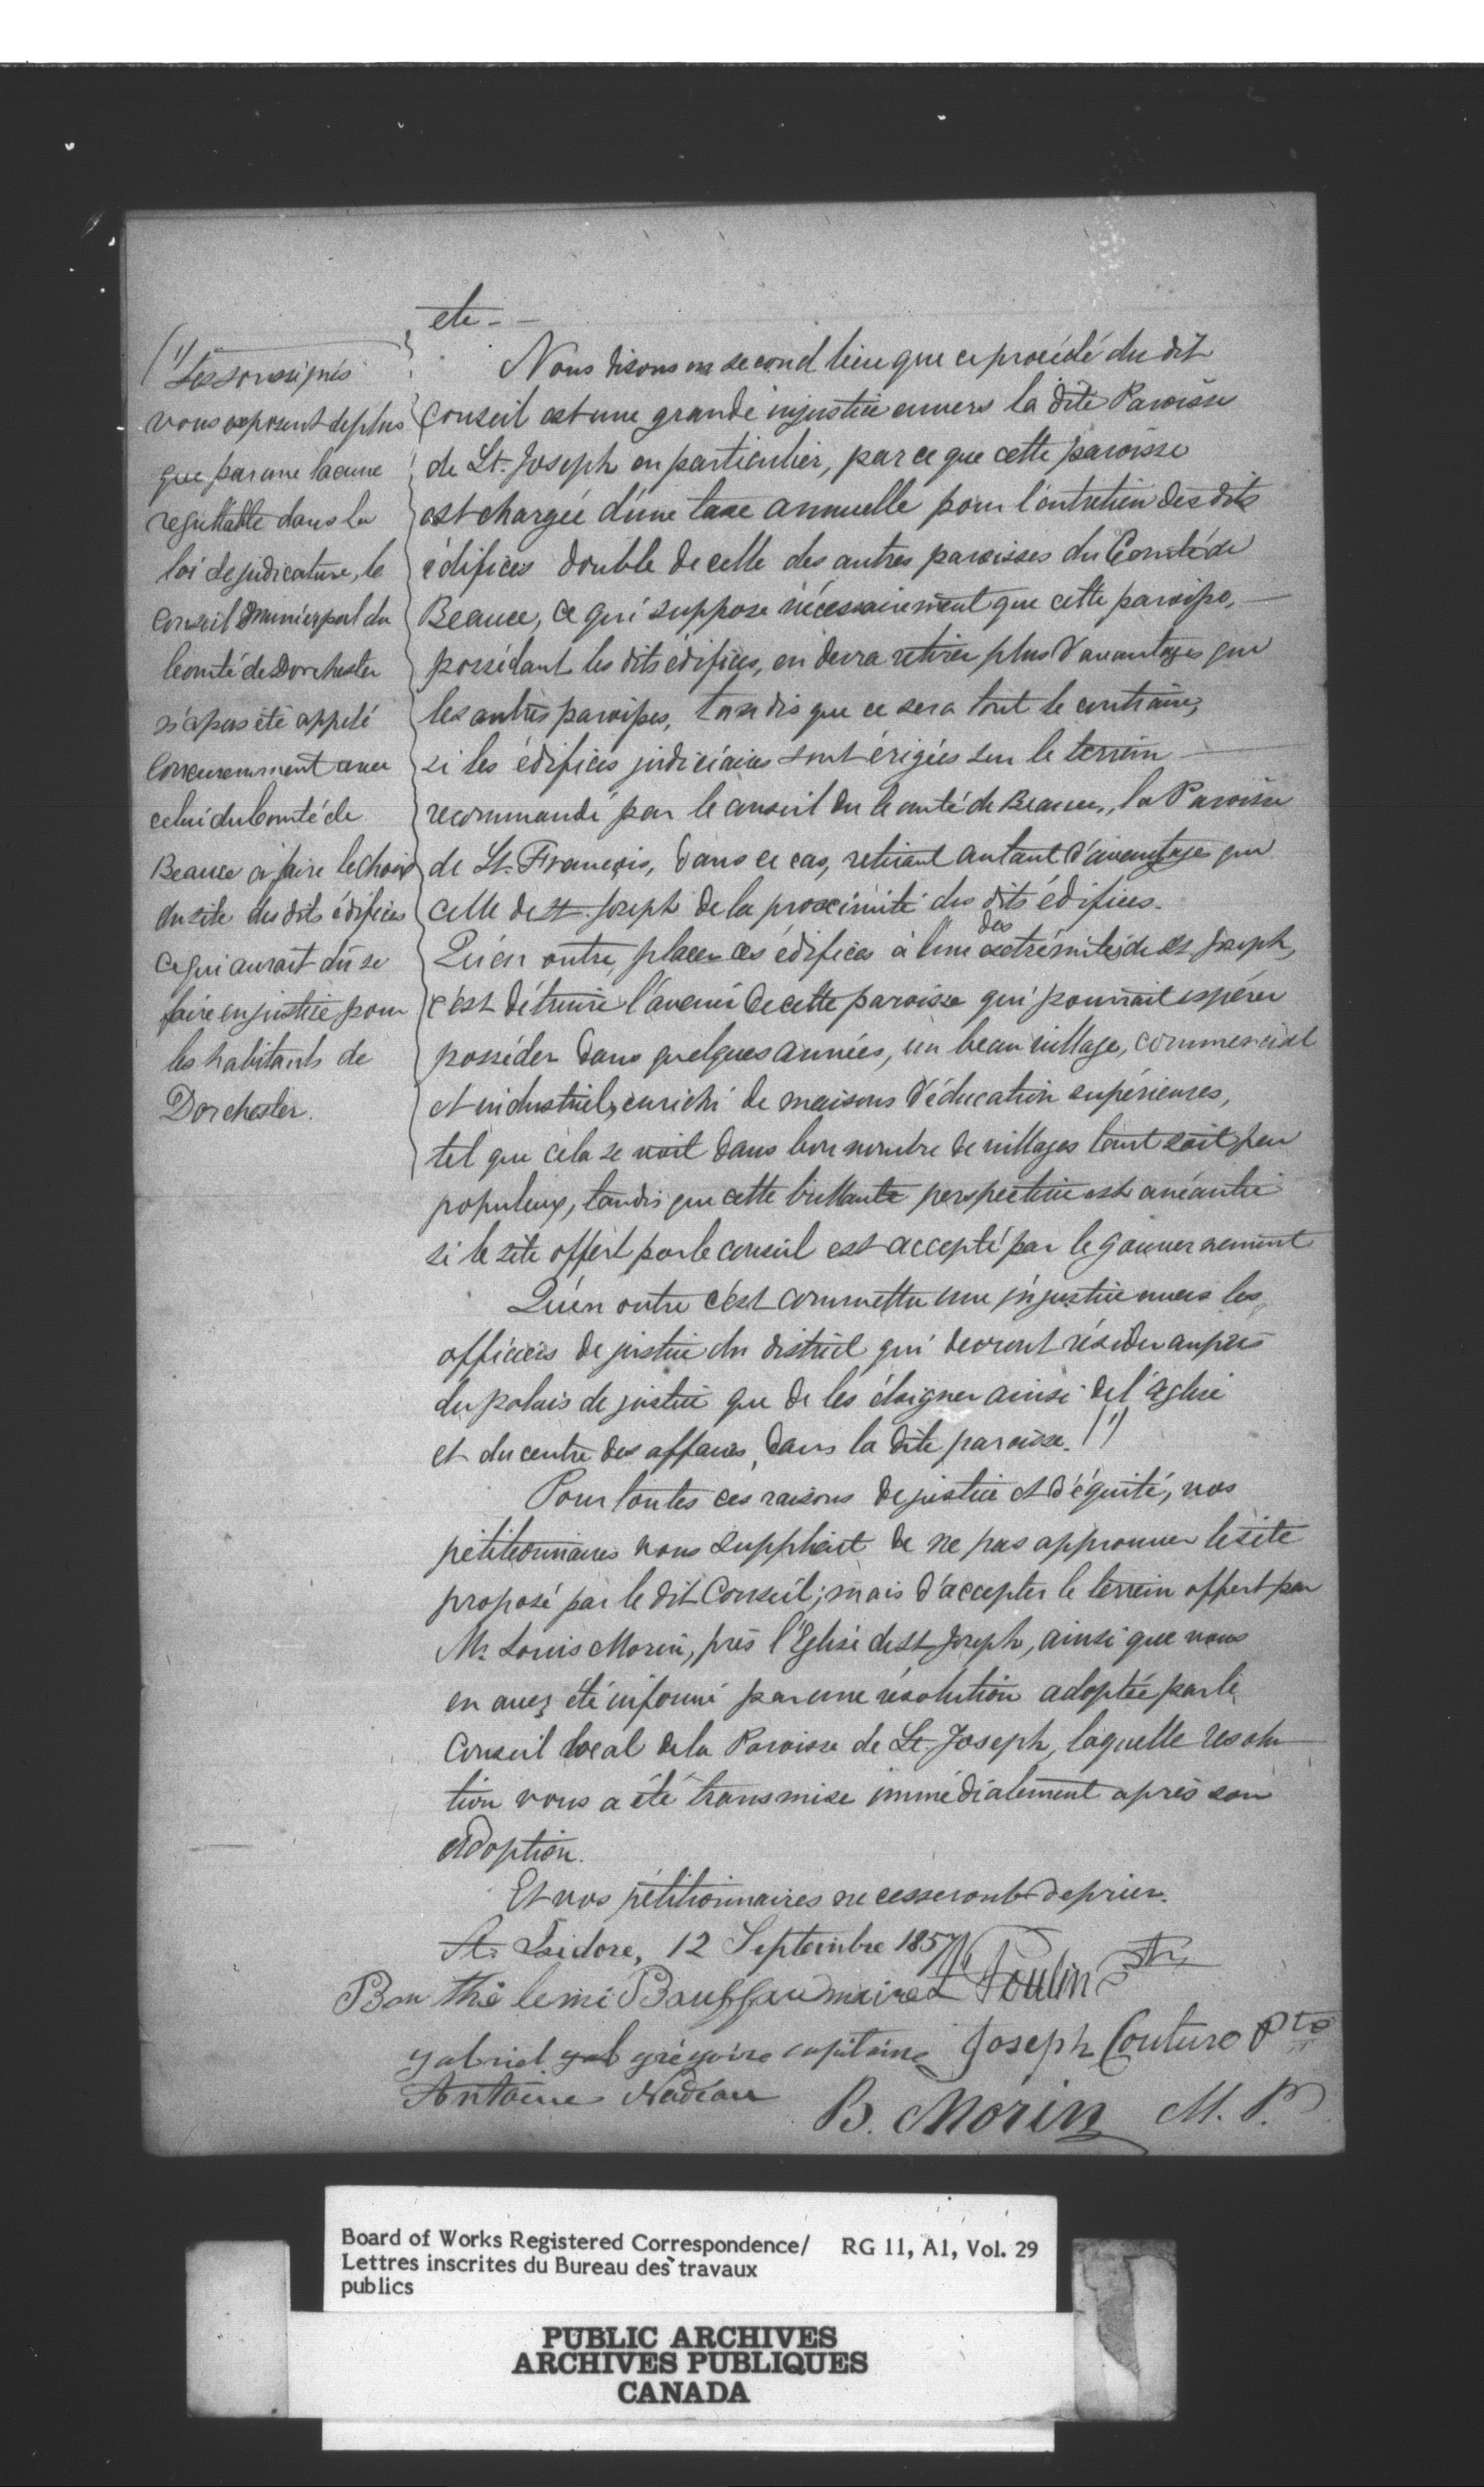 etc - -
Nous disons en second lieu que ce procédé du dit
Conseil est une grande injustice envers la dite Paroisse
de St. Joseph en particulier, par ce que cette paroisse
est chargée d'une taxe annuelle pour l'entretien des dits
édifices double de celle des autres paroisses du Comté de
Beauce, ce qui suppose nécessairement que cette paroisse,
possédant les dits édifices, en devra retirer plus d'avantages que
les autres paroisses, tandis que ce sera tout le contraire,
si les édifices judiciaires sont érigés sur le terrein
recommandé par le conseil du Comté de Beauce, la Paroisse
de St. François, dans ce cas, retirant autant d'avantage que
celle de St. Joseph de la proximité des dits édifices.
Qu'en outre, placer ces édifices à l'une des extrémités de St Joseph,
c'est détruire l'avenir de cette paroisse qui pourrait espérer
posséder dans quelques années, un beau village, commercial
et industriel, enrichi de maisons d'éducation supérieures,
tel que cela se voit dans bon nombre de villages tant soit peu
populeux, tandis que cette brillante perspective est anéantie
si le site offert par le conseil est accepté par le gouvernement
Qu'en outre c'est commettre une injustice envers les
officiers de justice du district qui devront résider auprès
du palais de justice que de les éloigner ainsi de l'église
et du centre des affaires, dans la dite paroisse. (1)
Pour toutes ces raisons de justice et d'équité, vos
pétitionnaires vous supplient de ne pas approuver le site
proposé par le dit Conseil; mais d'accepter le terrein offert par
Mr Louis Morin, près l'Eglise de St Joseph, ainsi que vous
en avez été informé par une résolution adoptée par le
Conseil local de la Paroisse de St. Joseph, laquelle resolu
tion vous a été transmise immédiatement après son
adoption.
Et vos pétitionnaires ne cesseront de prier.
St. Isidore, 12 Septembre 1857
(1) Les soussignés
vous exposent de plus
que par une lacune
regrettable dans la
loi de judicature, le
Conseil Municipal du
Comté de Dorchester
n'a pas été appelé
Concurremment avec
celui du Comté de
Beauce à faire le choix
du site des dits édifices
ce qui aurait dû se
faire en justice pour
les habitants de
Dorchester.
Poulin Ptre
Barthelemi maire
Joseph Couture Pte
gabriel grégoire capitaine
Antoine Nadeau
B. Morin M. P.
Board of Works Registered Correspondence/ RG 11, A1, Vol. 29
Lettres inscrites du Bureau des travaux
publics
PUBLIC ARCHIVES
ARCHIVES PUBLIQUES
CANADA